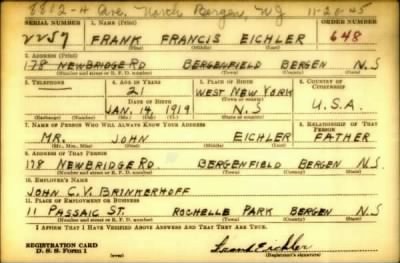 8802-4 Ave, North Bergen, NJ 11-20-45
SERIAL NUMBER 1. NAME (Print) ORDER NUMBER
2257 FRANK FRANCIS EICHLER 648
(First) (Middle) (Last)
2. ADDRESS (Print)
178 NEWBRIDGE RD BERGENFIELD BERGEN N.J
(Number and street or R. F. D. number) (Town) (County) (State)
3. TELEPHONE 4. AGE IN YEARS 5. PLACE OF BIRTH 6. COUNTRY OF CITIZENSHIP
21 WEST NEW YORK
DATE OF BIRTH (Town or county)
JAN. 14 1919 N.J U.S.A.
(Exchange) (Number) (Mo.) (Day) (Yr.) (State or country)
7. NAME OF PERSON WHO WILL ALWAYS KNOW YOUR ADDRESS RELATIONSHIP OF THAT PERSON
MR. JOHN EICHLER FATHER
(Mr., Mrs., Miss) (First) (Middle) (Last)
8. ADDRESS OF THAT PERSON
178 NEWBRIDGE RD BERGENFIELD BERGEN N.J
(Number and street or R. F. D. number) (Town) (County) (State)
10. EMPLOYER'S NAME
JOHN C. V. BRINKERHOFF
11. PLACE OF EMPLOYMENT OR BUSINESS
11 PASSAIC ST. ROCHELLE PARK BERGEN N.J
(Number and street or R. F. D. number) (Town) (County) (State)
I AFFIRM THAT I HAVE VERIFIED ABOVE ANSWERS AND THAT THEY ARE TRUE.
REGISTRATION CARD
D. S. S. Form 1 (over) Frank Eichler
(Registrant's signature)